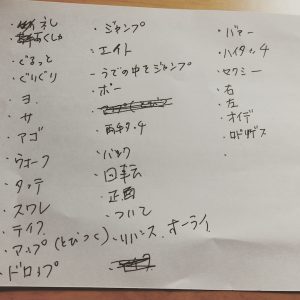 ・ぐるっと
・ぐりぐり
・ヨ
・サ
・アゴ
・ウォーク
・タッテ
・スワレ
・テイク
・アップ(とびつく)
・ドロップ
・ジャンプ
・エイト
・うでの中をジャンプ
・ポー
・両手タッチ
・バック
・回転
・正面
・ついて
・リバース
・オーライ
・バァー
・ハイタッチ
・セクシー
・右
・左
・オイデ
・ロドリゲス